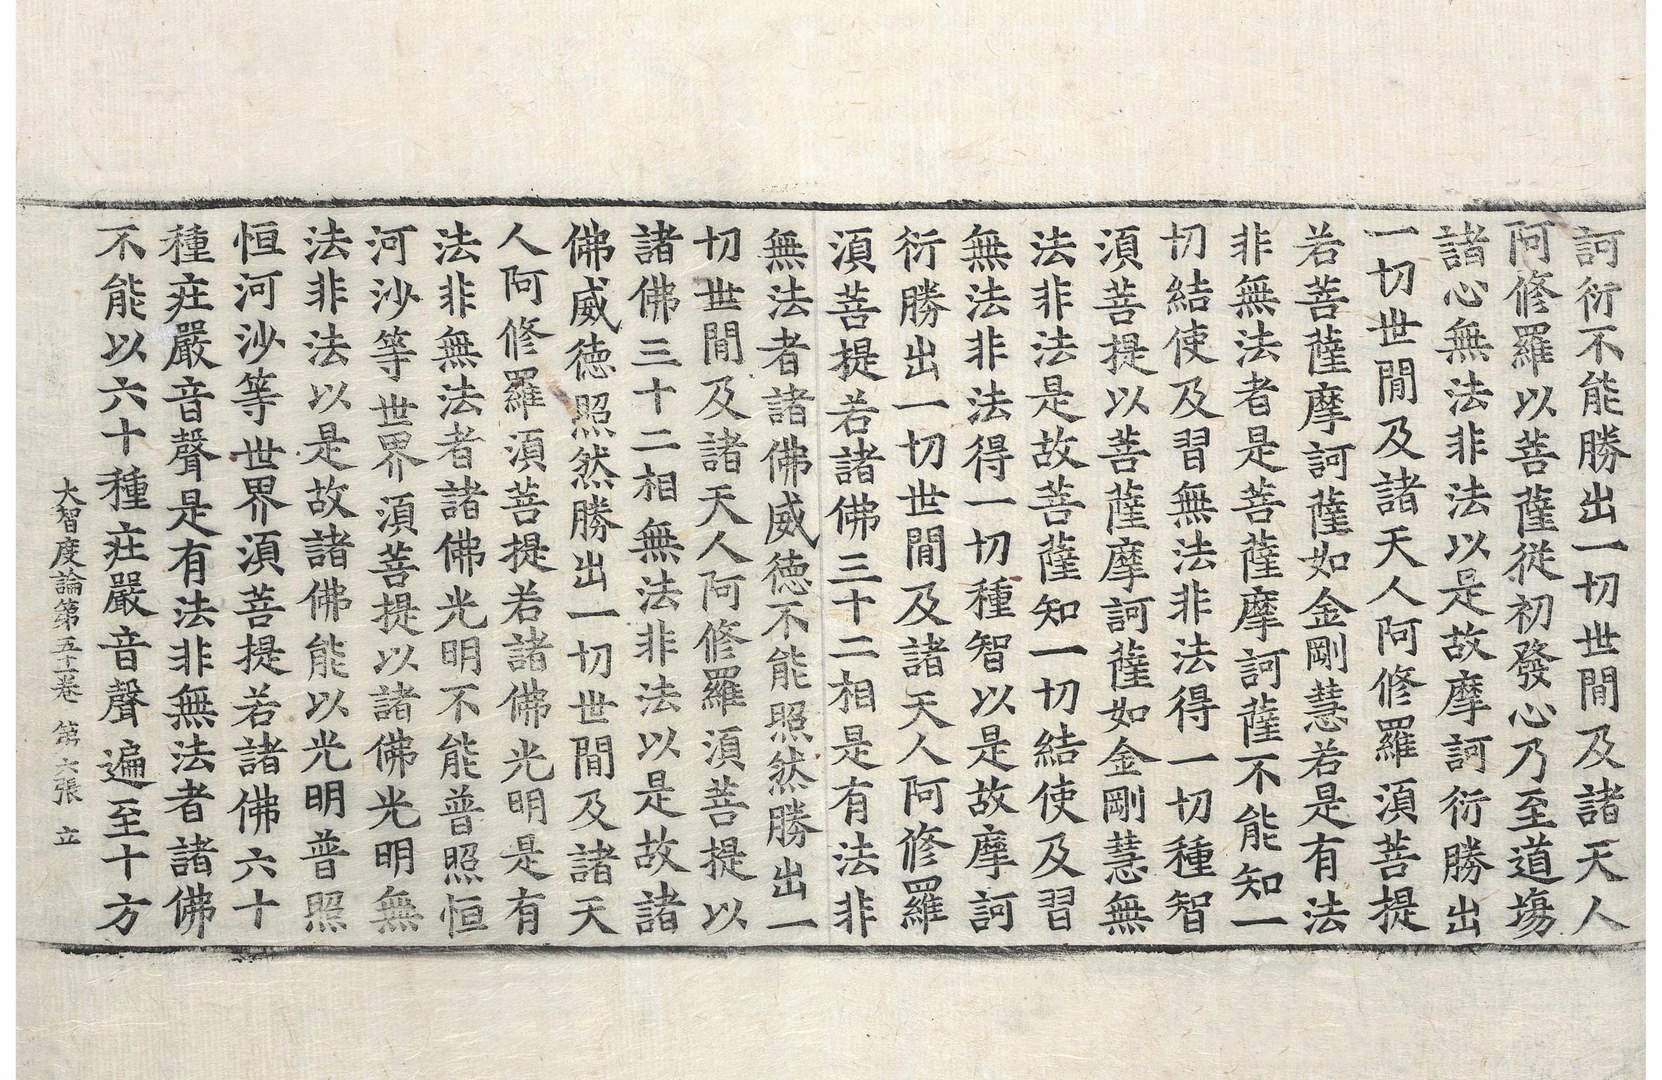 訶衍不能勝出一切世閒及諸天人
阿修羅以菩薩從初發心乃至道塲
諸心無法非法以是故摩訶衍勝出
一切世閒及諸天人阿修羅湏菩提
若菩薩摩訶薩如金剛慧若是有法
非無法者是菩薩摩訶薩不能知一
切結使及習無法非法得一切種智
湏菩提以菩薩摩訶薩如金剛慧無
法非法是故菩薩知一切結使及習
無法非法得一切種智以是故摩訶
衍勝出一切世閒及諸天人阿修羅
湏菩提若諸佛三十二相是有法非
無法者諸佛威德不能照然勝出一
切世閒及諸天人阿修羅湏菩提以
諸佛三十二相無法非法以是故諸
佛威德照然勝出一切世閒及諸天
人阿修羅湏菩提若諸佛光明是有
法非無法者諸佛光明不能普照恒
河沙等世界湏菩提以諸佛光明無
法非法以是故諸佛能以光明普照
恒河沙等世界湏菩提若諸佛六十
種莊嚴音聲是有法非無法者諸佛
不能以六十種莊嚴音聲遍至十方
大智度論第五十一卷 第六張 立